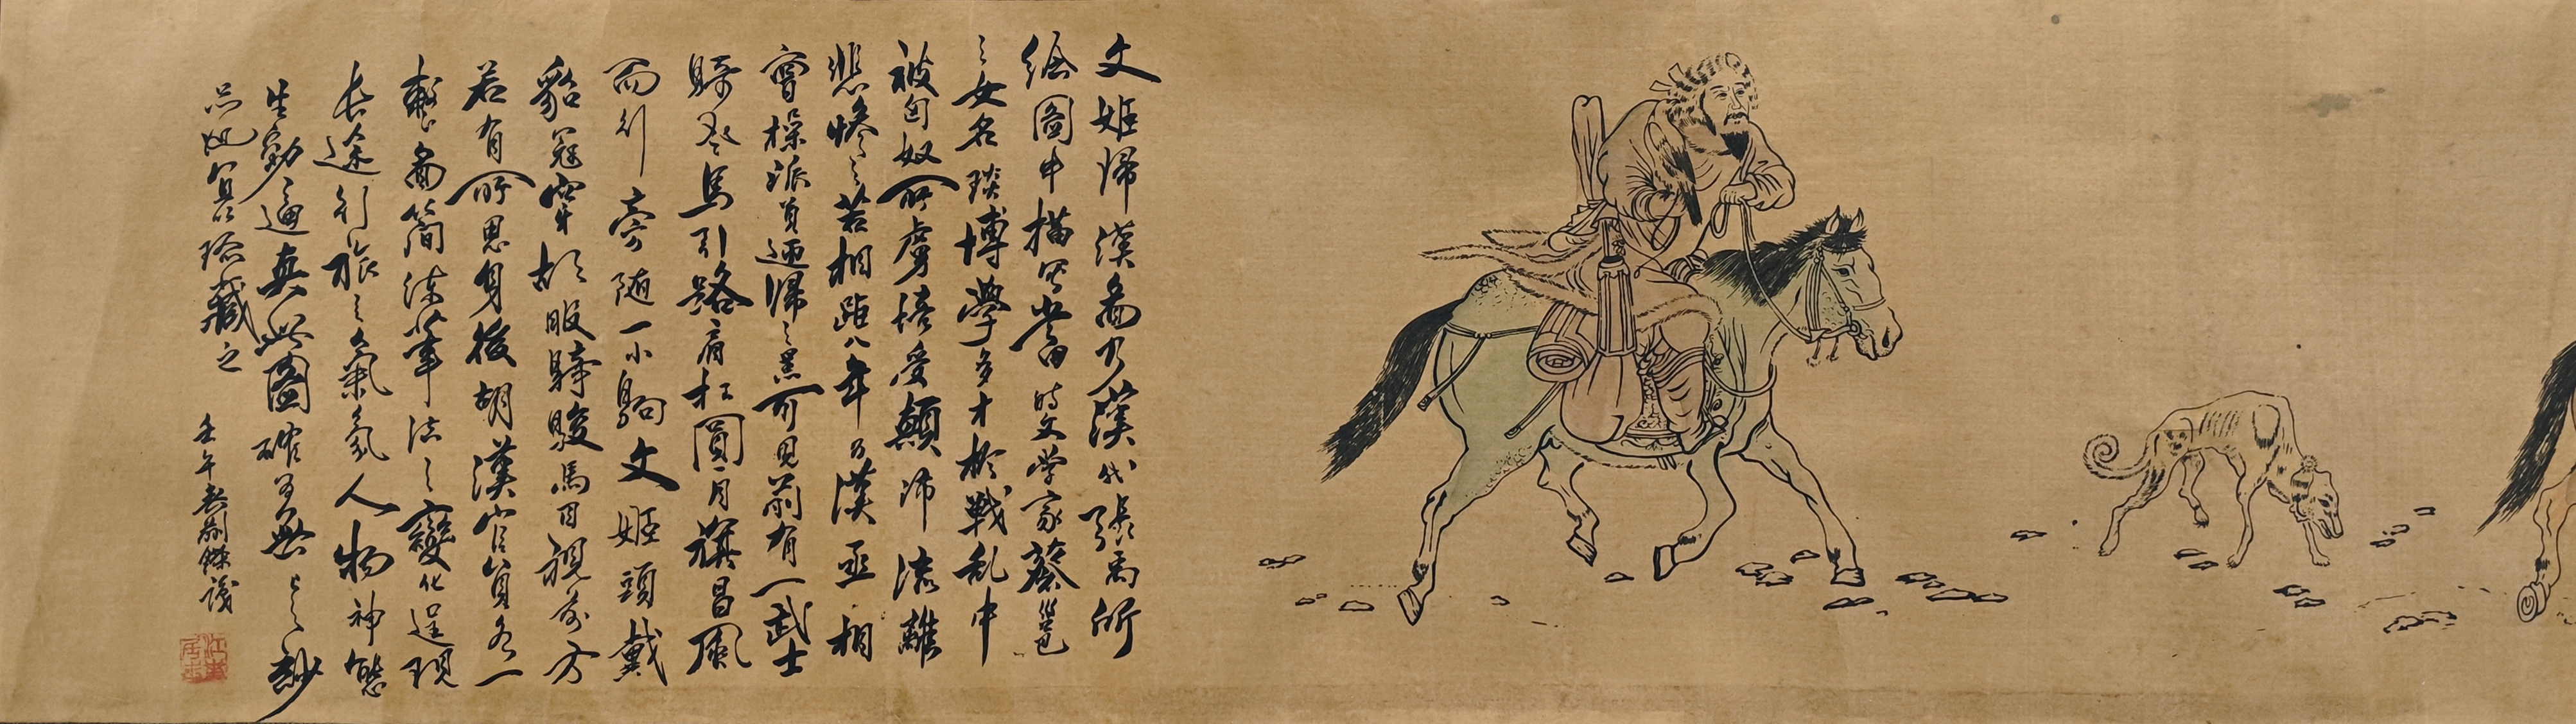 文姬歸漢圖乃漢代張禹所
繪圖中描寫當時文学家蔡邕
之女名琰博學多才於戰乱中
被匈奴所虜倍受顛沛流離
悲慘之苦相距八年乃漢丞相
曾操派員迎歸之景可見前有一武士
騎老馬引路肩杠圓月旗昌風
而行旁随一小駒文姬頭戴
貂冠穿胡服騎駿馬目視前方
若有所思身後胡漢官員各一
整圖簡湅筆法之變化逞現
长途行旅之氣氛人物神態
生動逼真此圖確為無上之妙
品也宜珍藏之
壬午